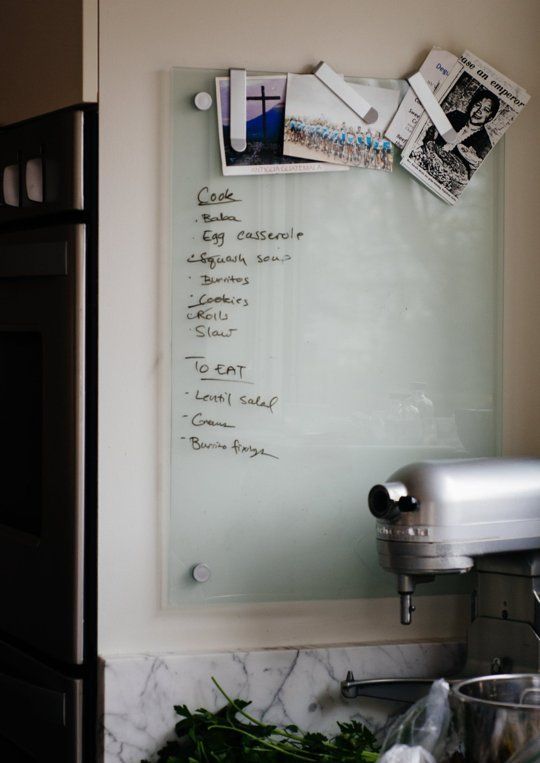 ase an emperor
Degu
ANTIGUA GUATEMALA
Cook
· Baba
· Egg casserole
· Squash soup
· Burritos
· Cookies
· Rolls
· Slaw
To EAT
- Lentil salad
- Greens
- Burrito fixings